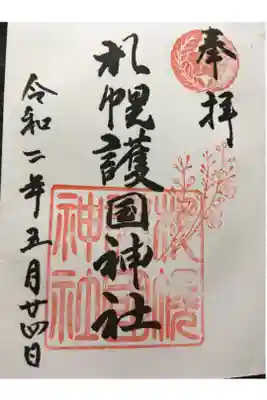 奉拝
札幌護国神社
令和二年五月廿四日